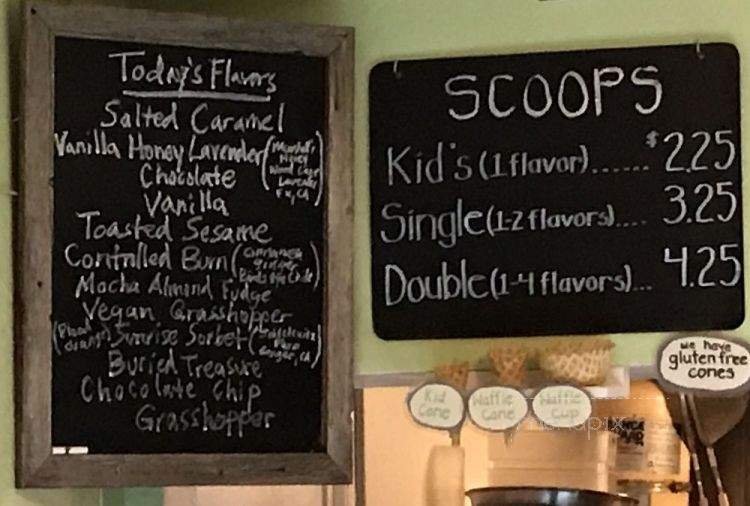 Today's Flavors
Salted Caramel
Vanilla Honey Lavender (Marshall's Honey
Chocolate
Vanilla
Toasted Sesame
Controlled Burn (cinnamon ginger Birds Eye Chile)
Mocha Almond Fudge
Vegan Grasshopper
(Blood Orange) Sunrise Sorbet (
Buried Treasure
Chocolate Chip
Grasshopper
SCOOPS
Kid's (1 flavor)...... $2.25
Single (1-2 flavors).... 3.25
Double (1-4 flavors)... 4.25
we have
gluten free
cones
Kid
Cone
Waffle
Cone
Waffle
Cup